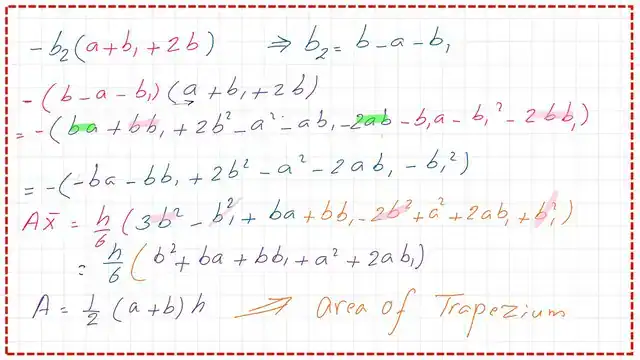 -b₂(a+b₁+2b) ⇒ b₂= b-a-b₁
-(b-a-b₁)(a+b₁+2b)
= -(ba+bb₁+2b²-a²-ab₁-2ab-b₁a-b₁²-2bb₁)
= -(-ba-bb₁+2b²-a²-2ab₁-b₁²)
Ax̄ = h/6 (3b²-b₁²+ba+bb₁-2b²+a²+2ab₁+b₁²)
= h/6 (b²+ba+bb₁+a²+2ab₁)
A = 1/2 (a+b)h ⇒ area of Trapezium